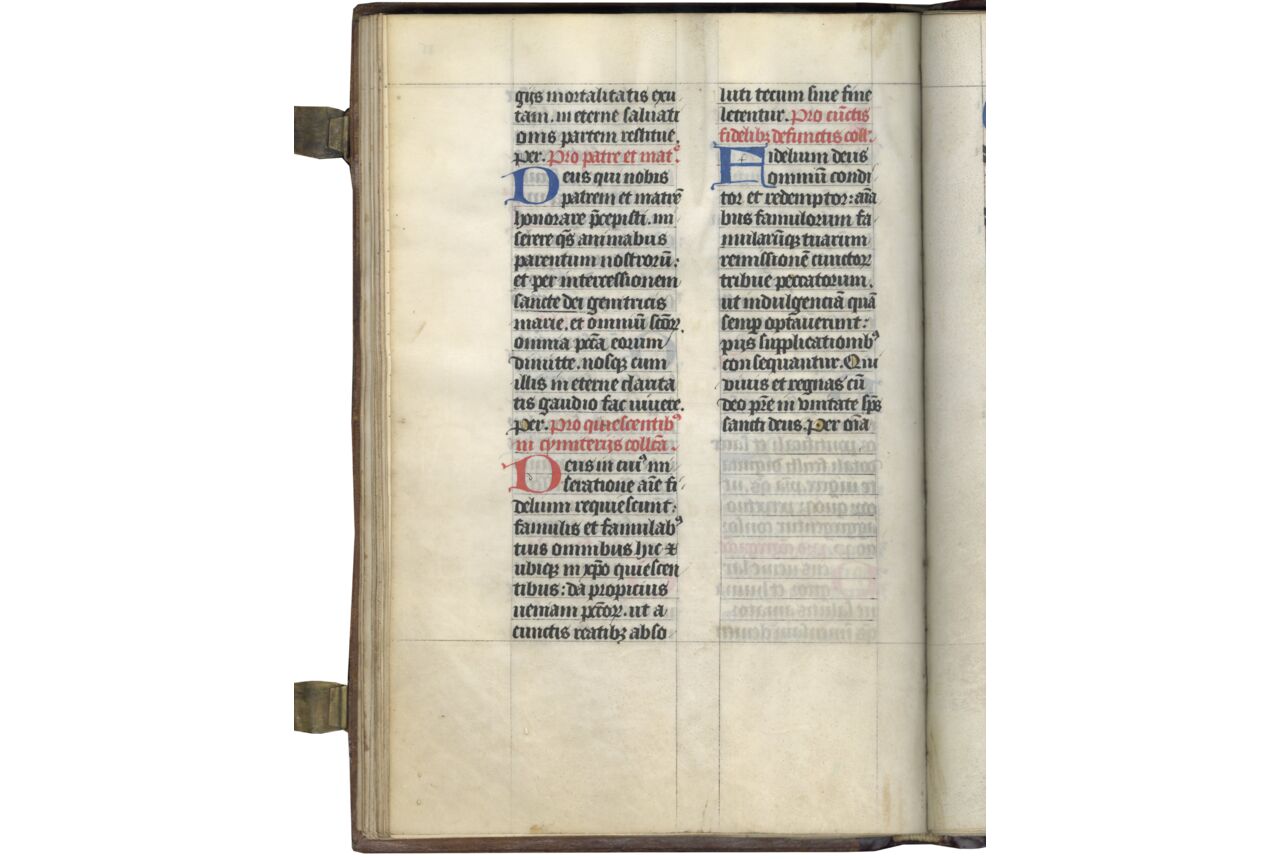 gijs mortalitatis exu
tam. in eterne saluati
onis partem restitue.
per. Pro patre et matꝰ.
Deus qui nobis
patrem et matrē
honorare p̄cepisti. mi
serere qs̄ animabus
parentum nostrorū:
et per intercessionem
sancte dei genitricis
marie. et omniū sc̄oꝝ.
omnia pc̄ta eorum
dimitte. nosqꝫ cum
illis in eterne clarita
tis gaudio fac uiuere.
per. Pro quiescentibꝰ
in cymiterijs collc̄a.
Deus in cuiꝰ mi
seratione aīe fi
delium requiescunt:
famulis et famulabꝰ
tuis omnibus hic ⁊
ubiqꝫ in xp̄o quiescen
tibus: da propicius
ueniam pc̄toꝝ. ut a
cunctis reatibꝫ abso
luti tecum sine fine
letentur. Pro cūctis
fidelibꝫ defunctis coll:
Fidelium deus
omniū condi
tor et redemptor: aīa
bus famulorum fa
mularūqꝫ tuarum
remissionē cunctoꝝ
tribue peccatorum.
ut indulgenciā quā
semꝑ optauerunt:
pijs supplicationibꝰ
consequantur. Qui
viuis et regnas cū
deo pr̄e in vnitate sp̄s
sancti deus. Per oīa